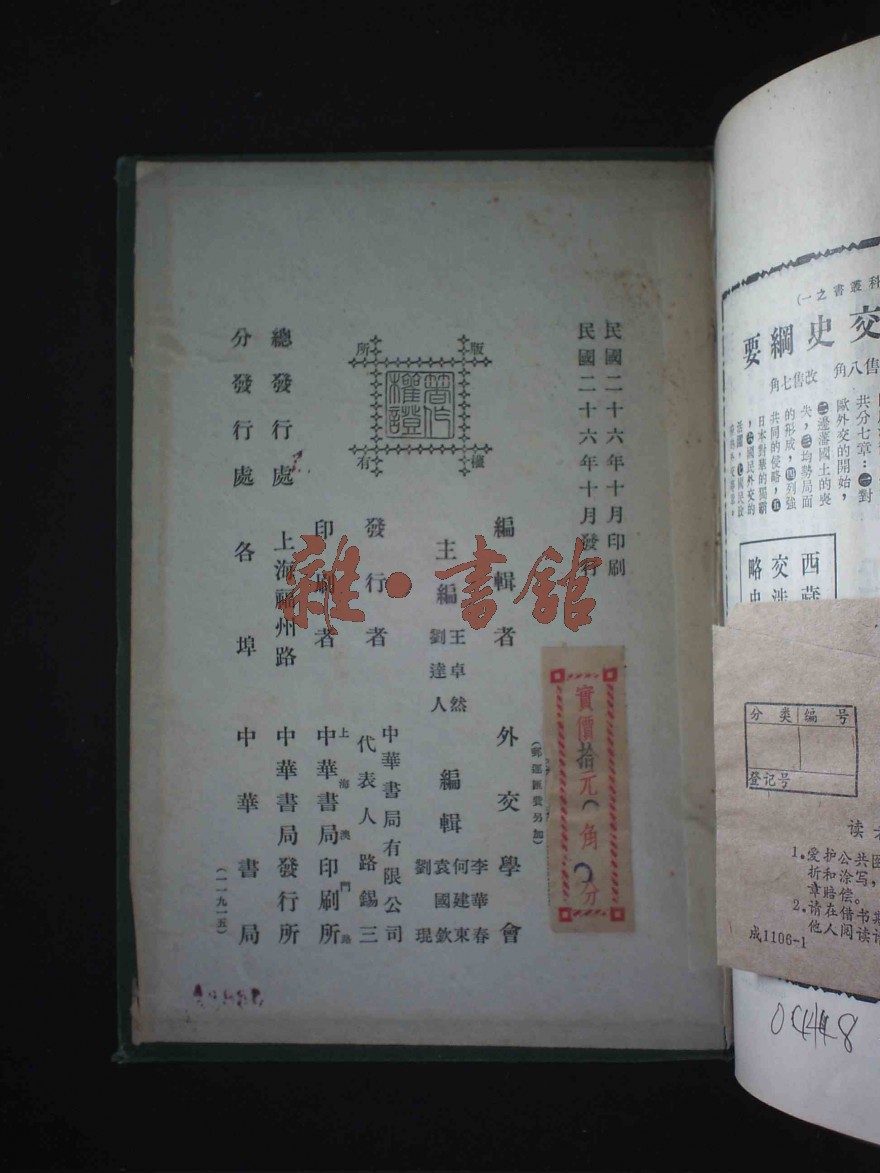 民國二十六年十月印刷
民國二十六年十月發行
實價拾元〇角〇分
(郵運匯費另加)
編輯者 外交學會
主編 王卓然 劉達人
編輯 李華春 何建東 袁國欽 劉琨
發行者 中華書局有限公司
代表人路錫三
印刷者 上海澳門路
中華書局印刷所
總發行處 上海福州路
中華書局發行所
分發行處 各埠 中華書局
(一一九一五)
版權所有
著作權證
雜·書館
科叢書之一)
交史綱要
售八角 改售七角
共分七章:㊀對
歐外交的開始,
㊁邊藩國土的喪
失,㊂均勢局面
的形成,㊃列強
共同的侵略,㊄
日本對華的獨霸
,㊅國民外交的
西藏
交涉
略史
分类编号
登记号
读者
1.爱护公共图
折和涂写,
章赔偿。
2.请在借书期
他人阅读
成1106-1